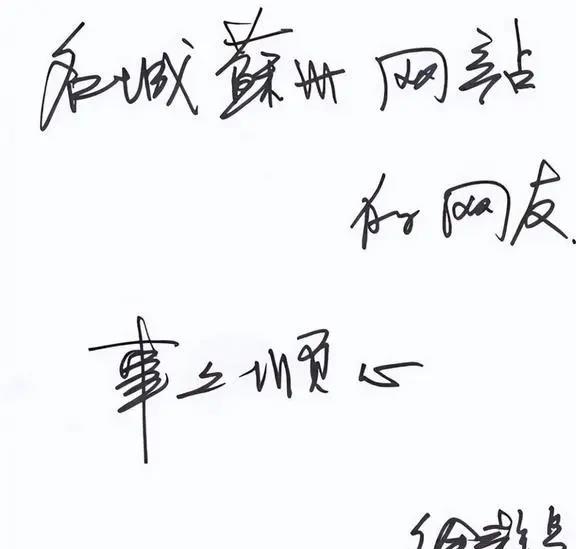 名城蘇州网站
的网友
事々顺心